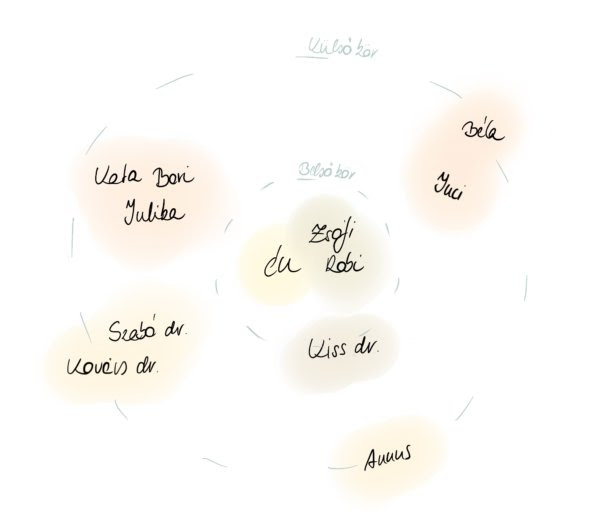 Külső kör
Béla
Kata Bori
Julika
Belső kör
Juci
Zsófi
én Robi
Szabó dr.
Kovács dr.
Kiss dr.
Annus